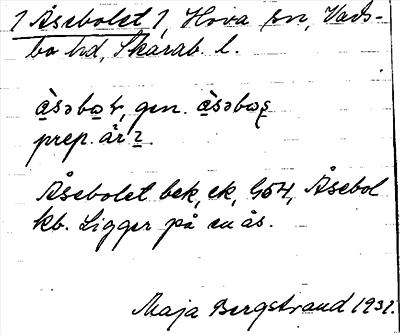 1 Åsebolet 1, Hova sn, Vads-
bo hd, Skarab. l.
prep. är
Åsebolet bek, ek, Åsebol
kb. Ligger på en ås.
Maja Bergstrand 1937.